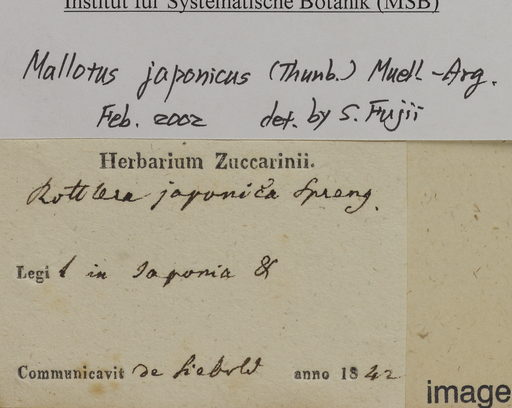 Institut für Systematische Botanik (MSB)
Mallotus japonicus (Thunb.) Muell-Arg.
Feb. 2002 det. by S. Fujii
Herbarium Zuccarinii.
Rottlera japonica Spreng.
Legi t in Japonia &
Communicavit de Siebold anno 1842
image